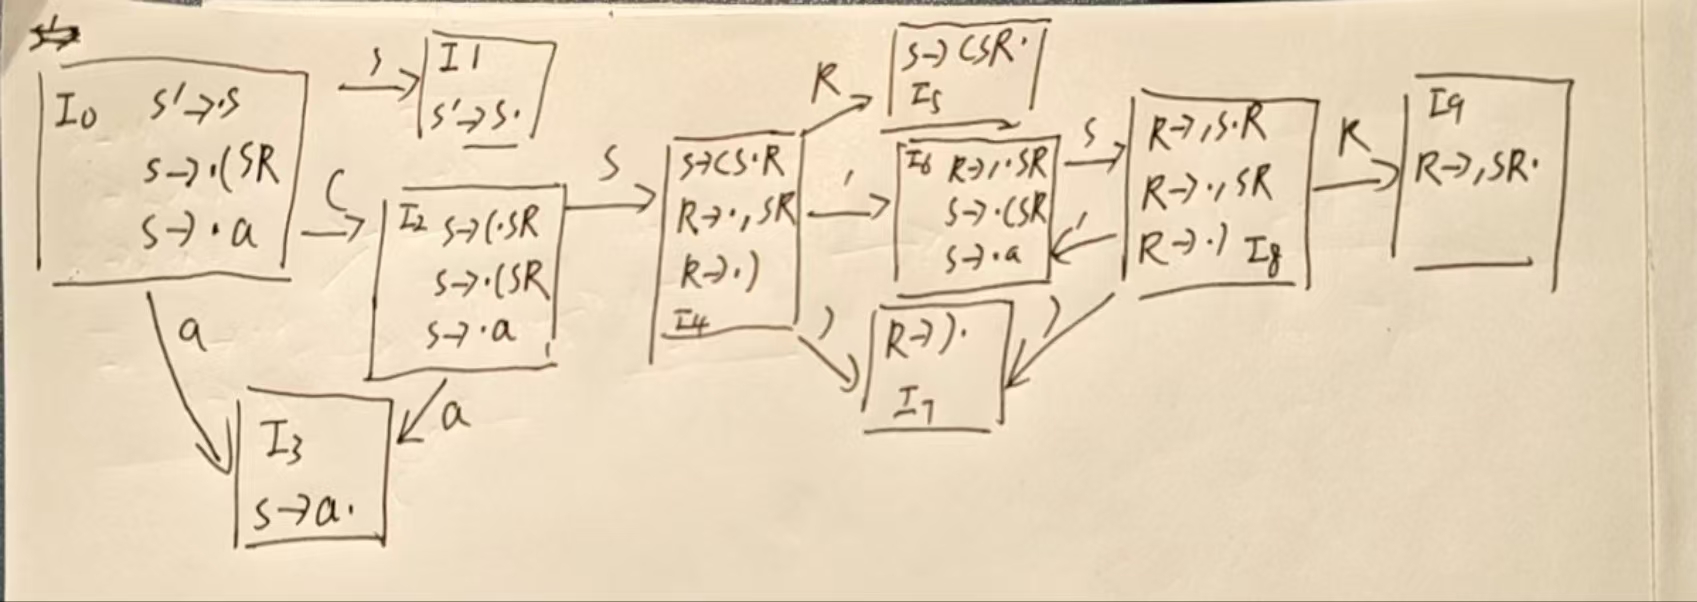 I0 s'→·s
s→·(SR
s→·a
s
I1
s'→s·
(
a
I2 s→(·SR
s→·(SR
s→·a
a
I3
s→a·
S
s→(s·R
R→·,SR
R→·)
I4
R
s→(SR·
I5
,
I6 R→,·SR
s→·(SR
s→·a
)
R→)·
I7
S
R→,s·R
R→·,SR
R→·) I8
,
)
R
I9
R→,SR·